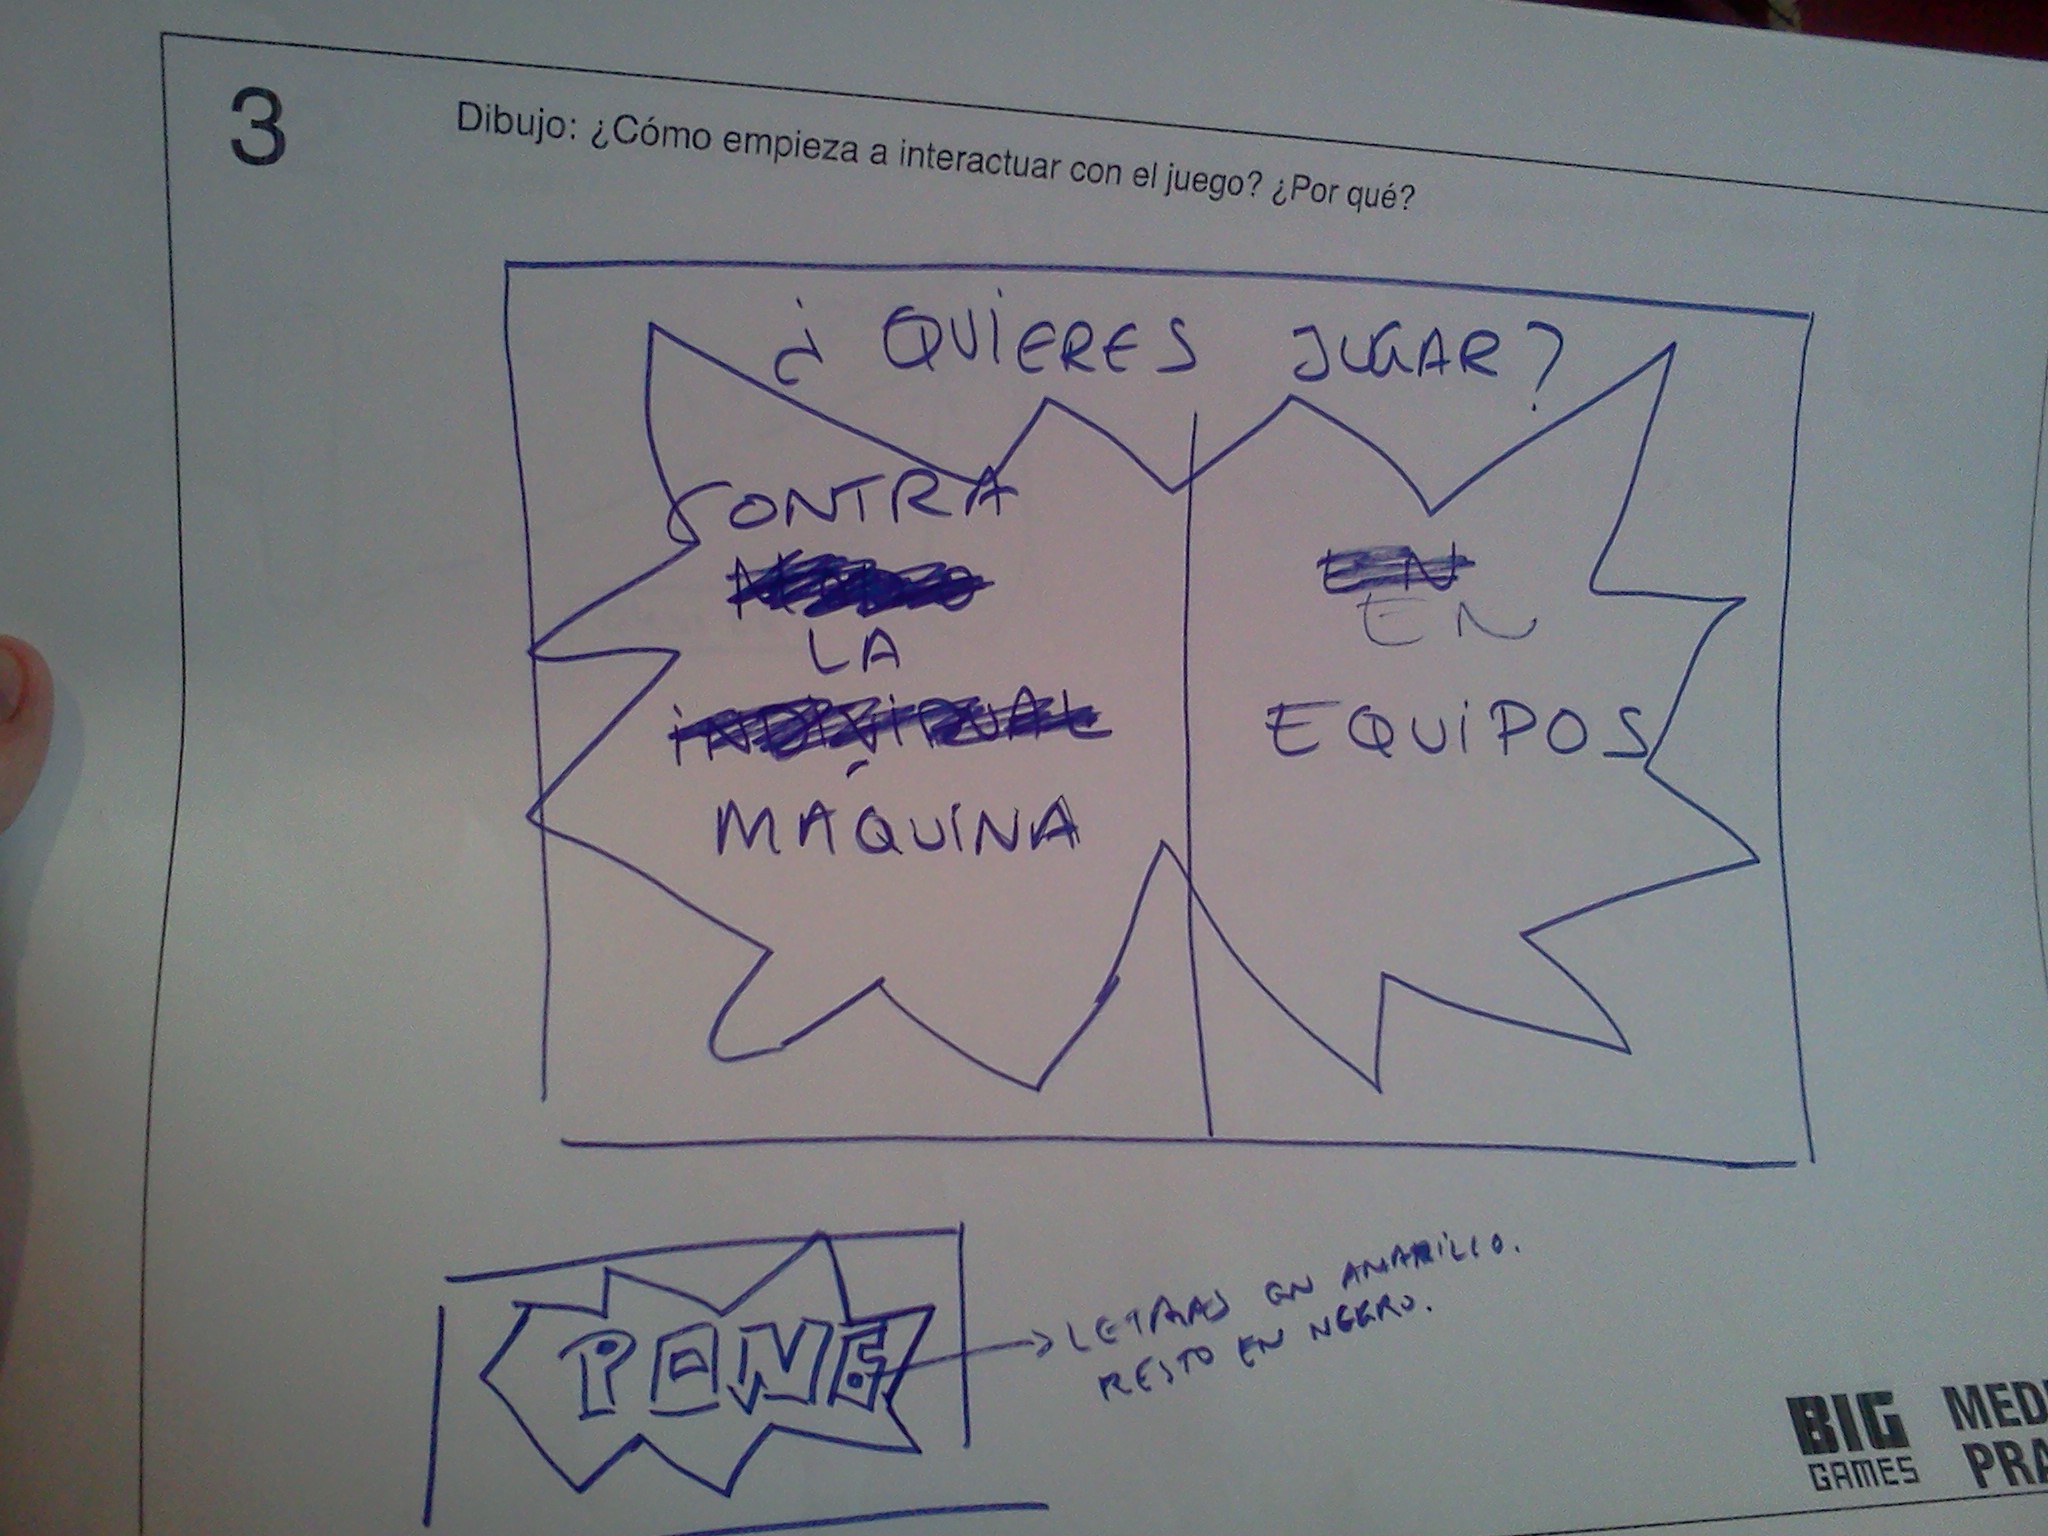 3
Dibujo: ¿Cómo empieza a interactuar con el juego? ¿Por qué?
¿QUIERES JUGAR?
CONTRA
LA
INDIVIDUAL
MÁQUINA
EN
EN
EQUIPOS
LETRAS EN AMARILLO.
RESTO EN NEGRO.
BIG
GAMES
MED
PRA